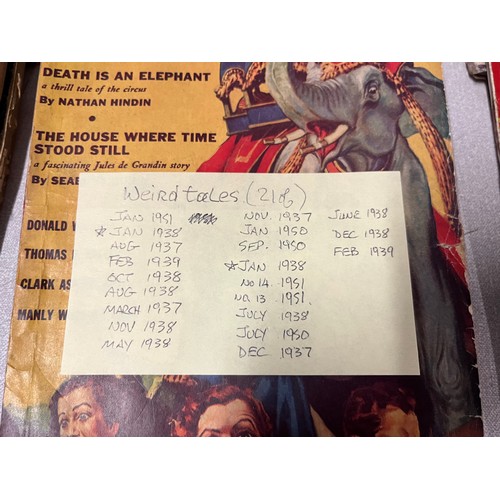 DEATH IS AN ELEPHANT
a thrill tale of the circus
By NATHAN HINDIN
THE HOUSE WHERE TIME
STOOD STILL
a fascinating Jules de Grandin story
By SEAB
DONALD W
THOMAS
CLARK AS
MANLY W
Weird tales (21 of)
JAN 1951
☆ JAN 1938
AUG 1937
FEB 1939
OCT 1938
AUG 1938
MARCH 1937
NOV 1938
MAY 1938
NOV. 1937
JAN 1950
SEP. 1950
☆ JAN 1938
NO 14. 1951
NO. 13 1951.
JULY 1938
JULY 1950
DEC 1937
JUNE 1938
DEC 1938
FEB 1939